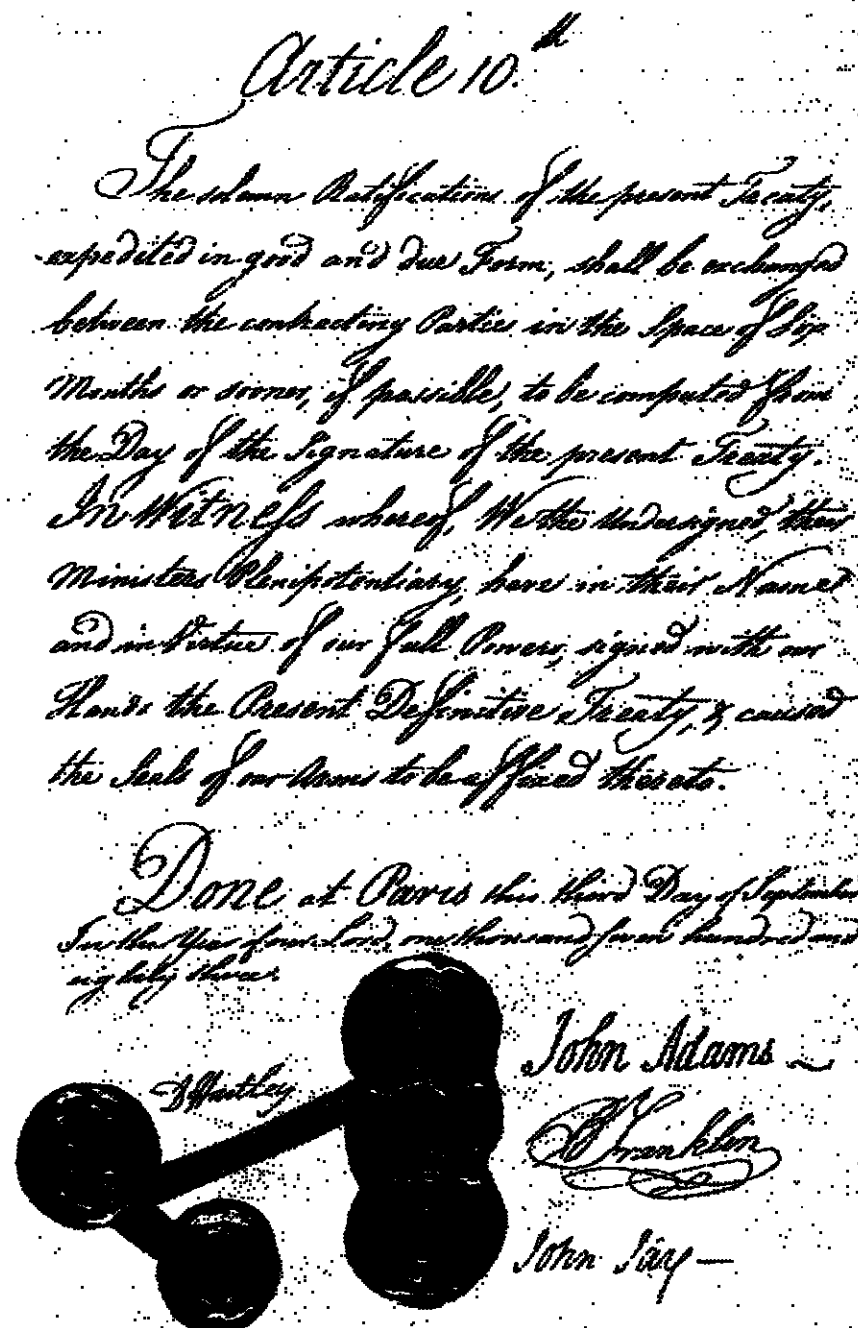 Article 10.th
The solemn Ratifications of the present Treaty,
expedited in good and due Form, shall be exchanged
between the contracting Parties in the Space of Six
Months or sooner, if possible, to be computed from
the Day of the Signature of the present Treaty.
In Witness whereof, We the Undersigned, their
Ministers Plenipotentiary, have in their Name
and in Virtue of our full Powers, signed with our
Hands the Present Definitive Treaty, & caused
the Seals of our Arms to be affixed thereto.
Done at Paris this third Day of September
In the Year of our Lord, one thousand seven hundred and
eighty three.
D Hartley
John Adams
B Franklin
John Jay